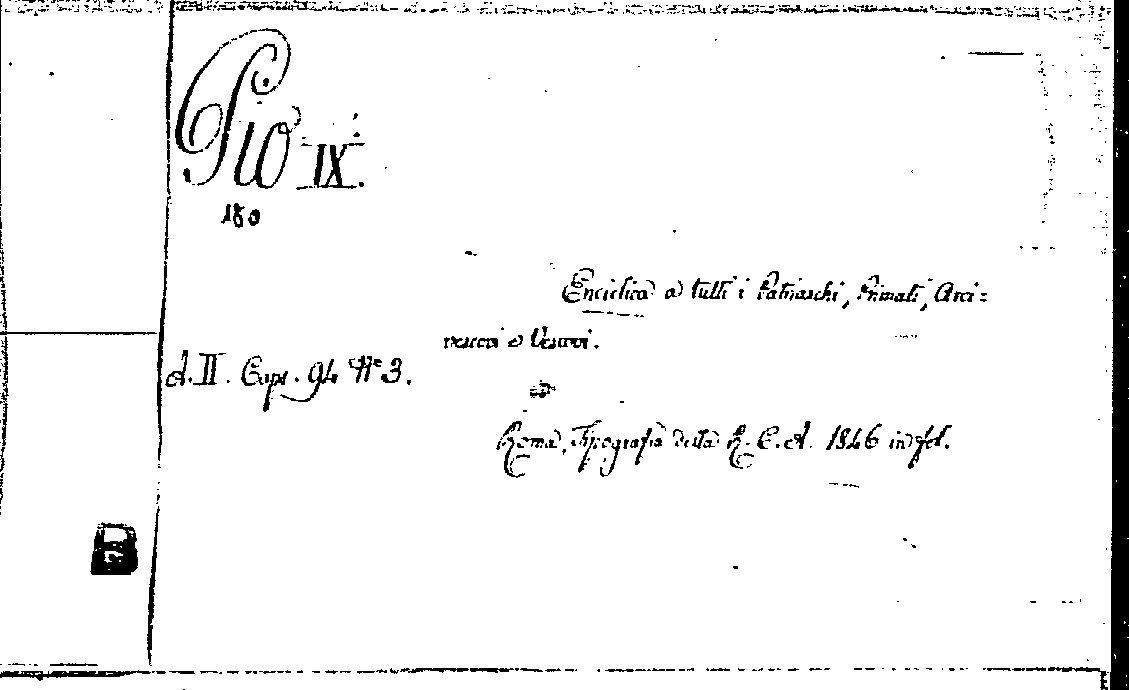 Pio IX.
180
Enciclica a tutti i Patriarchi, Primati, Arci=
vescovi e Vescovi.
A. II. Caps. 94 Nº 3.
Roma, Tipografia della R. C. A. 1846 in fol.